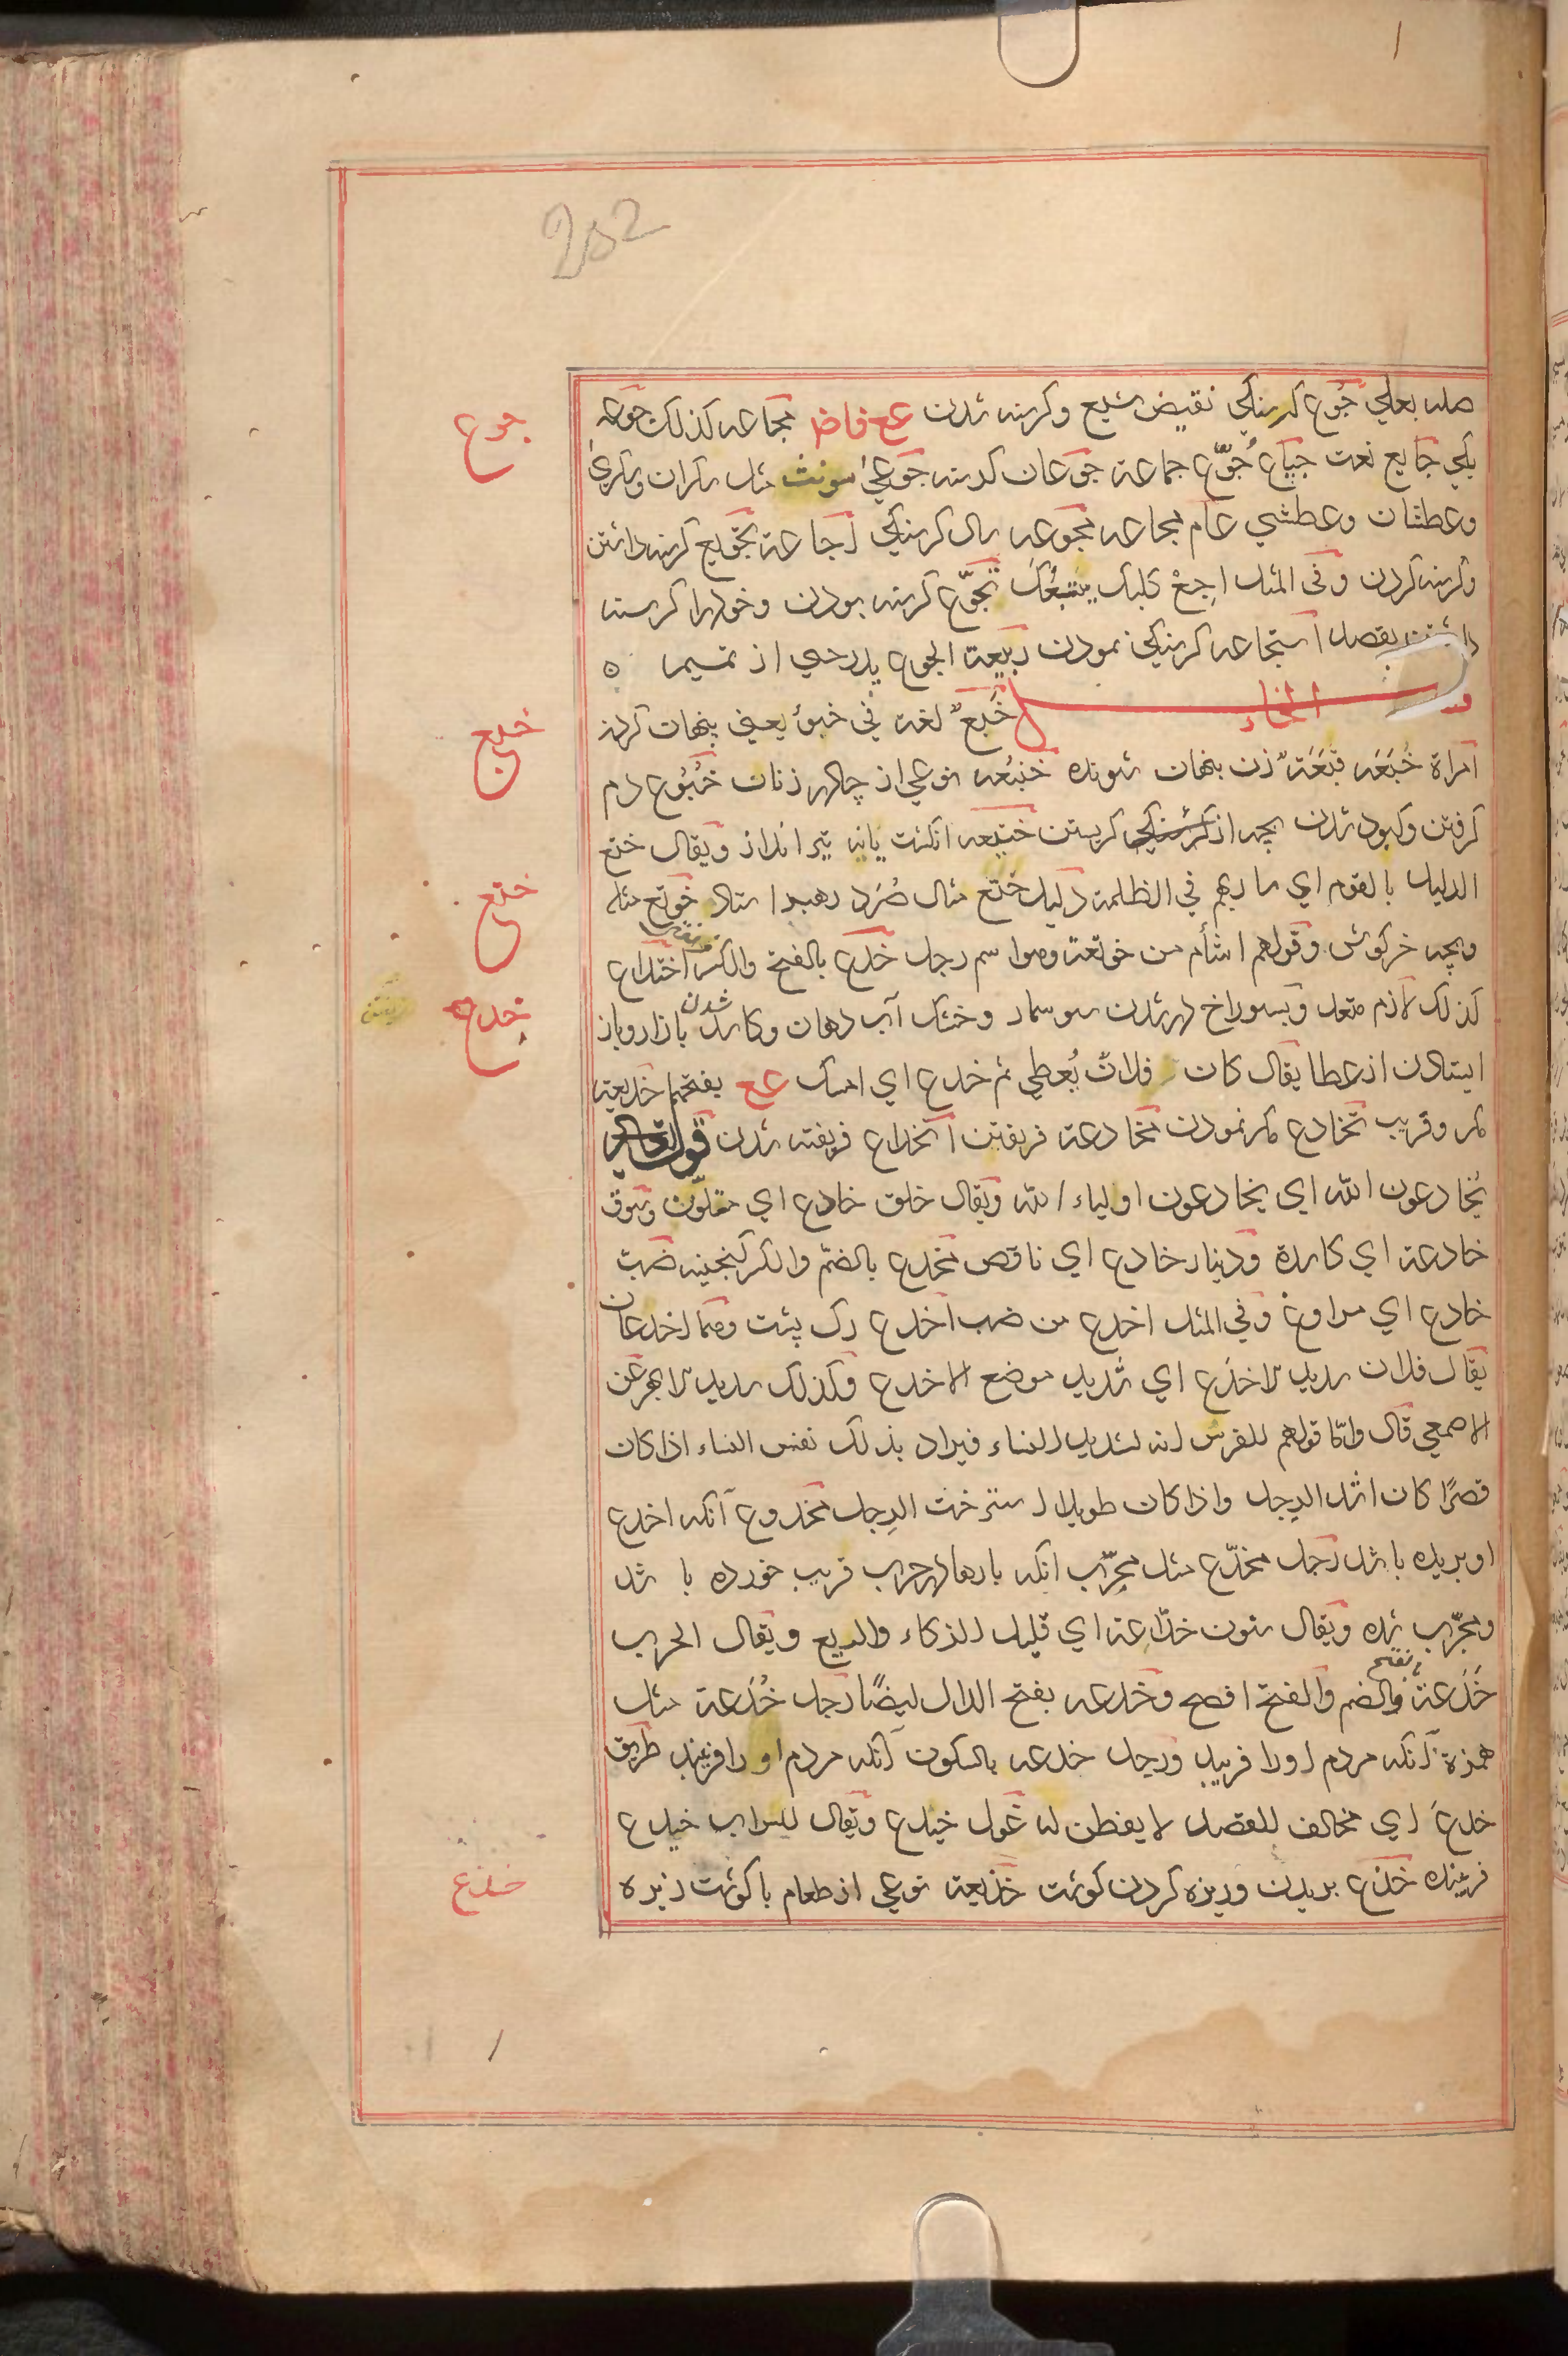 252
صله بعلي جُوع كرسنكي نقيض شبع وكرسنه شدن ع ع ف اض مجاعه كذلك جوعه
يكي جايع نعت جياع جُوّع جماعة جوعان كرسنه جوعي مونث مثل سكران وسكري
وعطشان وعطشي عام مجاعه مجوعه سال كرسنكي اجاعة تجويع كرسنه داشتن
وكرسنه كردن وفي المثل اجِعْ كلبك يتبعُك تجوّع كرسنه بودن وخود را كرسنه
داشتن بقصد استجاعه كرسنكي نمودن ربيعة الجوع پدر حي از تميم ٥
الخاء خَبعٌ لغة في خبؤ يعني پنهان كردن
امراة خُبَعَه قُبَعَةٌ زن پنهان شونده خنبُعه نوعي از چادر زنان خُبُوع دم
كرفتن وكبود شدن بچه از كرستنكي كريستن ختيعه انكشت يانه تير انداز ويقال ختع
الدليل بالقوم اي ساربهم في الظلمة دليل ختع مثال صُرَد رهبر استاد خوتع مثله
وبچه خركوش وقولهم اشأم من خوتعة وهو اسم رجل خدع بالفتح والكسر فريفتن اختداع
كذلك لازم متعد وبسوراخ در شدن سوسمار وخشك آب دهان وكاسد شدن بازار وباز
ايستادن از عطا يقال كان فلانٌ يُعطي ثم خدع اي امسك ع ع بفتحهما خديعة
مكر وفريب تخادع مكر نمودن مخادعة فريفتن انخداع فريفته شدن قوله تعالي
يُخادعون الله اي يخادعون اولياء الله ويقال خلق خادع اي متلون وسوق
خادعة اي كاسدة ودينار خادع اي ناقص مخدع بالضم والكسر كنجينه ضبّ
خادع اي مراوغ وفي المثل اخدع من ضب اخدع رك پشت وهما اخدعان
يقال فلان شديد الاخدَع اي شديد موضع الاخدع وكذلك شديد الابهر عن
الاصمعي قال وامّا قولهم للفرس انه لشديد النساء فيراد بذلك نفس النساء اذا كان
قصرًا كان اشد الرجل واذا كان طويلا استرخت الرجل مخدوع آنكه اخدع
او بريده باشد رجل مخدّع مثل مجرّب انكه بارها در حرب فريب خورده باشد
ومجرّب شده ويقال سنون خدّاعة اي قليل الذكاء والريع ويقال الحرب
خَدَعةٌ بالفتح والضم والفتح افصح وخدعه بفتح الدال ايضًا رجل خُدَعة مثل
همزة آنكه مردم اورا فريبد ورجل خدعه بالسكون آنكه مردم اورا فريبند طريق
خدعَ اي مخالف للقصد لا يفطن له غول خيدع ويقال للسراب خيدع
فريبنده خذع بريدن وريزه كردن كوشت خذيعة نوعي از طعام با كوشت ريزه
جوع
خبع
ختع
خدع
فريفتن
خذع